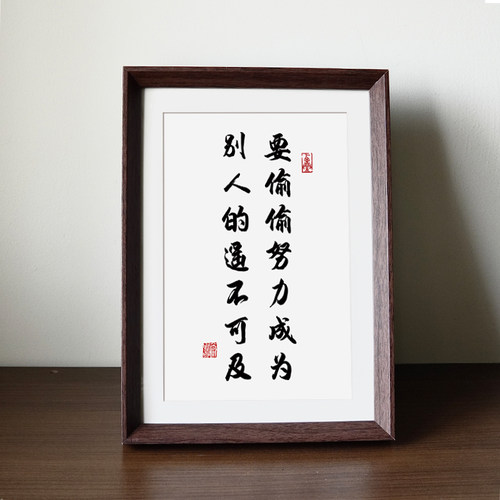 要偷偷努力成为
别人的遥不可及